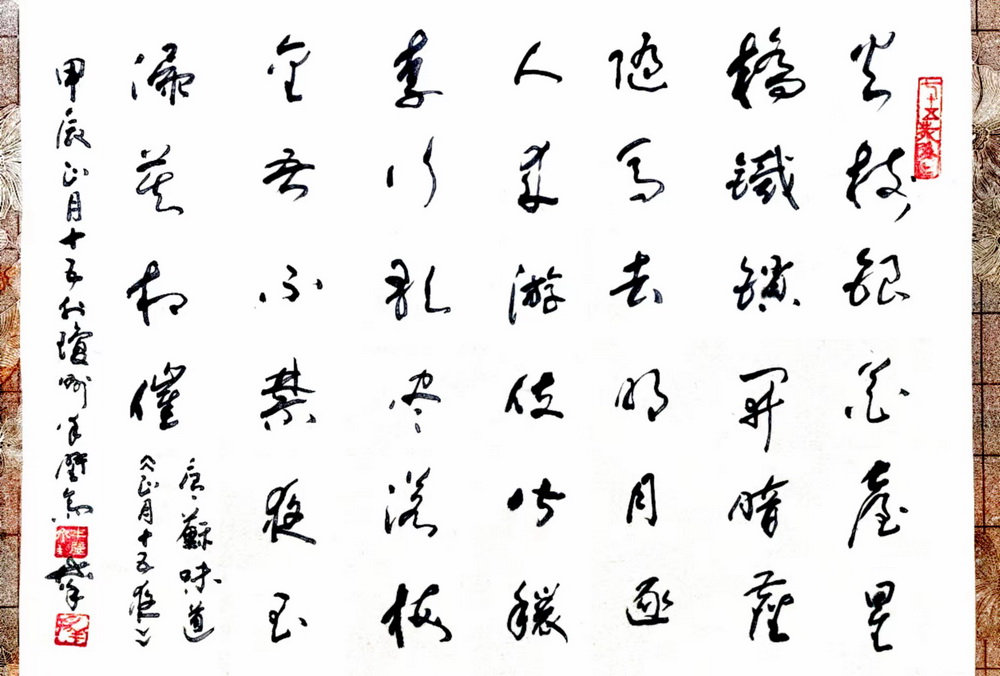 火樹銀花星
橋鐵鎖開暗塵
隨馬去明月逐
人来游伎皆穠
李行歌尽落梅
金吾不禁夜玉
漏莫相催
唐·蘇味道
《正月十五夜》
甲辰正月十五於瓊州半壁斋